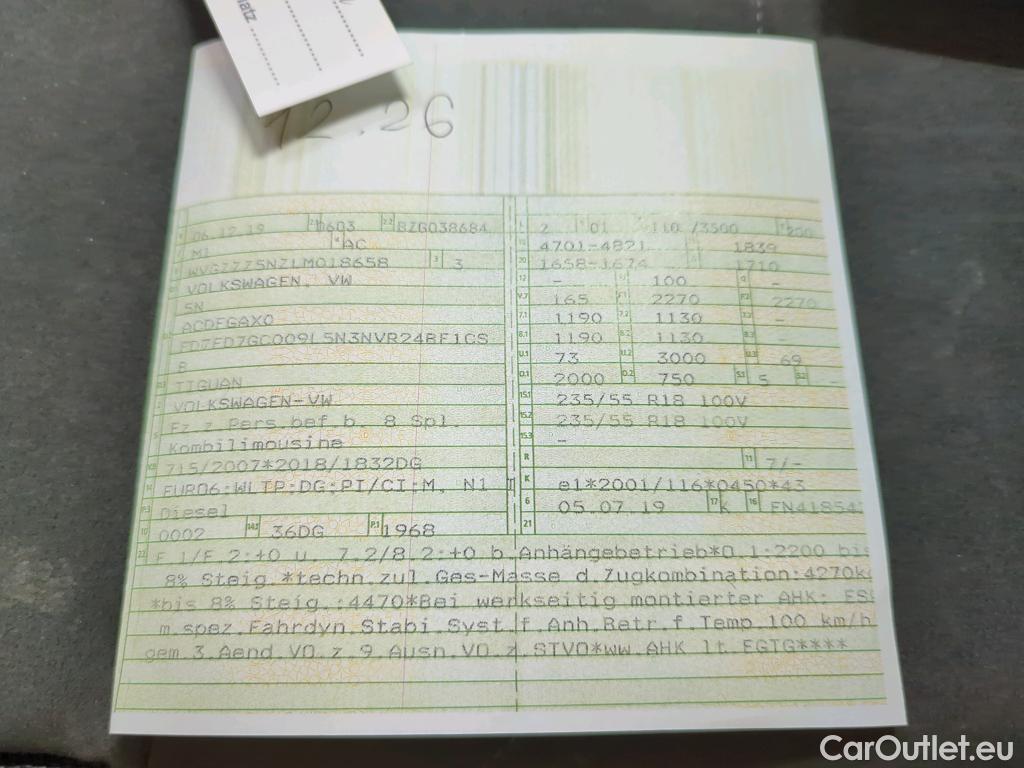 latz
12.26
06.12.19 0603 BZG038684
M1 AC
WVGZZZ5NZLM018658 3 3
VOLKSWAGEN, VW
5N
ACDFGAX0
8
TIGUAN
VOLKSWAGEN-VW
Fz.z.Pers.bef.b. 8 Spl.
Kombilimousine
715/2007*2018/1832DG
EURO6;WLTP;DG;PI/CI;M, N1 I
Diesel
10 0002 14.1 36DG P.3 1968
L 2 01 110 /3500 200
18 4701-4821 1839
20 1658-1674 1710
12 - 100 -
V.7 165 F.1 2270 F.2 2270
7.1 1190 7.2 1130 7.3 -
8.1 1190 8.2 1130 8.3 -
U.1 73 U.2 3000 U.3 69
O.1 2000 O.2 750 S.1 5 S.2 -
15.1 235/55 R18 100V
15.2 235/55 R18 100V
15.3 -
R 11 7/-
K e1*2001/116*0450*43
6 05.07.19 17 K 16 FN41854
21
22 F.1/F.2:+0 u. 7.2/8.2:+0 b.Anhängebetrieb*O.1:2200 bis
8% Steig.*techn.zul.Ges-Masse d.Zugkombination:4270k
*bis 8% Steig.:4470*Bei werkseitig montierter AHK: ES
m.spez.Fahrdyn.Stabi.Syst.f.Anh.Betr.f.Temp.100 km/h
gem.3.Aend.VO.z.9.Ausn.VO.z.STVO*ww.AHK lt.EGTG****
CarOutlet.eu